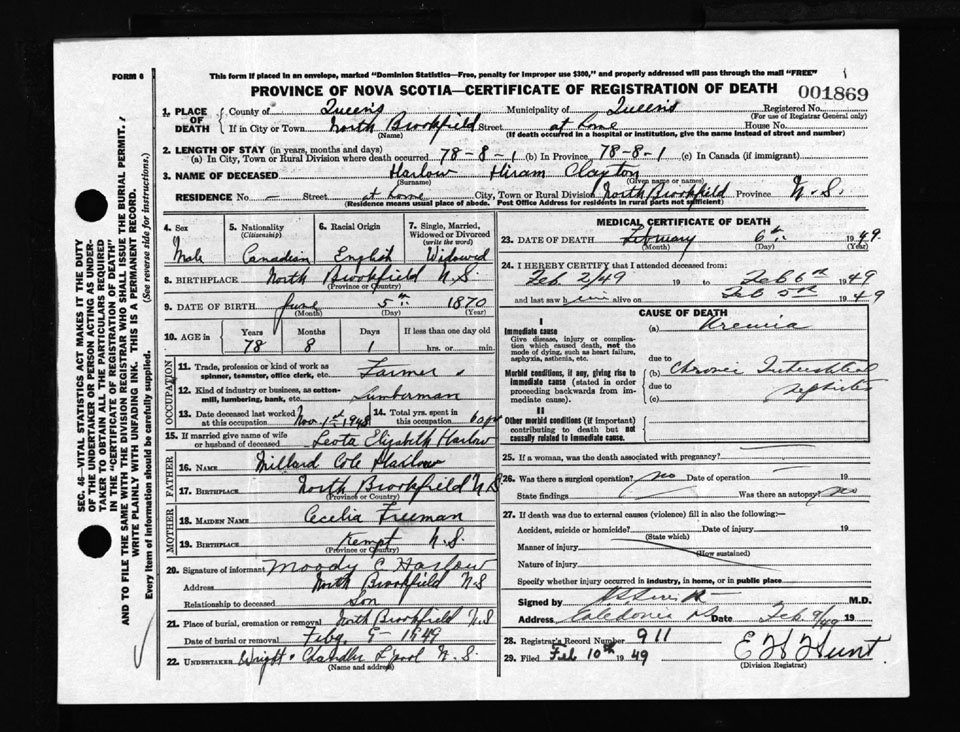 FORM 6
This form if placed in an envelope, marked "Dominion Statistics—Free, penalty for improper use $300," and properly addressed will pass through the mail "FREE"
PROVINCE OF NOVA SCOTIA—CERTIFICATE OF REGISTRATION OF DEATH 001869
1. PLACE OF DEATH County of Queens Municipality of Queens Registered No.
(For use of Registrar General only)
If in City or Town North Brookfield Street at home House No.
(Name) (If death occurred in a hospital or institution, give the name instead of street and number)
2. LENGTH OF STAY (in years, months and days)
(a) In City, Town or Rural Division where death occurred 78-8-1 (b) In Province 78-8-1 (c) In Canada (if immigrant)
3. NAME OF DECEASED Harlow Hiram Clayton
(Surname) (Given name or names)
RESIDENCE No. — Street at home City, Town or Rural Division North Brookfield Province N.S.
(Residence means usual place of abode. Post Office Address for residents in rural parts not sufficient)
4. Sex 5. Nationality 6. Racial Origin 7. Single, Married, Widowed or Divorced
(Citizenship) (write the word)
Male Canadian English Widowed
8. BIRTHPLACE North Brookfield N.S.
(Province or Country)
9. DATE OF BIRTH June 5th 1870
(Month) (Day) (Year)
10. AGE in Years Months Days If less than one day old
78 8 1 hrs. or min.
OCCUPATION
11. Trade, profession or kind of work as spinner, teamster, office clerk, etc. Farmer
12. Kind of industry or business, as cotton-mill, lumbering, bank, etc. Lumberman
13. Date deceased last worked at this occupation Nov. 1st 1948 14. Total yrs. spent in this occupation 60 yrs
15. If married give name of wife or husband of deceased Leota Elizabeth Harlow
FATHER
16. NAME Millard Cole Harlow
17. BIRTHPLACE North Brookfield N.S
(Province or Country)
MOTHER
18. MAIDEN NAME Cecelia Freeman
19. BIRTHPLACE Kempt N.S.
(Province or Country)
20. Signature of informant Moody C Harlow
Address North Brookfield N.S
Relationship to deceased Son
21. Place of burial, cremation or removal North Brookfield N.S
Date of burial or removal Feby. 9 - 1949
22. UNDERTAKER Wright & Chandler L'pool N.S.
(Name and address)
MEDICAL CERTIFICATE OF DEATH
23. DATE OF DEATH February 6th 1949.
(Month) (Day) (Year)
24. I HEREBY CERTIFY that I attended deceased from:
Feb 2/49 19 to Feb 6th 1949
and last saw him alive on Feb 5th 1949
CAUSE OF DEATH
I
Immediate cause (a) Uremia
Give disease, injury or complication which caused death, not the mode of dying, such as heart failure, asphyxia, asthenia, etc.
due to
Morbid conditions, if any, giving rise to immediate cause (stated in order proceeding backwards from immediate cause). (b) Chronic Interstitial
due to nephritis
(c)
II
Other morbid conditions (if important) contributing to death but not causally related to immediate cause.
25. If a woman, was the death associated with pregnancy?
26. Was there a surgical operation? no Date of operation 19
State findings Was there an autopsy? no
27. If death was due to external causes (violence) fill in also the following:—
Accident, suicide or homicide? Date of injury 19
(State which)
Manner of injury
(How sustained)
Nature of injury
Specify whether injury occurred in industry, in home, or in public place
Signed by M.D.
Address Caledonia NS Date Feb. 9/49 19
28. Registrar's Record Number 911
29. Filed Feb 10th 1949 E H Hunt.
(Division Registrar)
SEC. 46—VITAL STATISTICS ACT MAKES IT THE DUTY
OF THE UNDERTAKER OR PERSON ACTING AS UNDER-
TAKER TO OBTAIN ALL THE PARTICULARS REQUIRED
IN THE "CERTIFICATE OF REGISTRATION OF DEATH"
AND TO FILE THE SAME WITH THE DIVISION REGISTRAR WHO SHALL ISSUE THE BURIAL PERMIT.
WRITE PLAINLY WITH UNFADING INK. THIS IS A PERMANENT RECORD.
Every item of information should be carefully supplied. (See reverse side for instructions.)